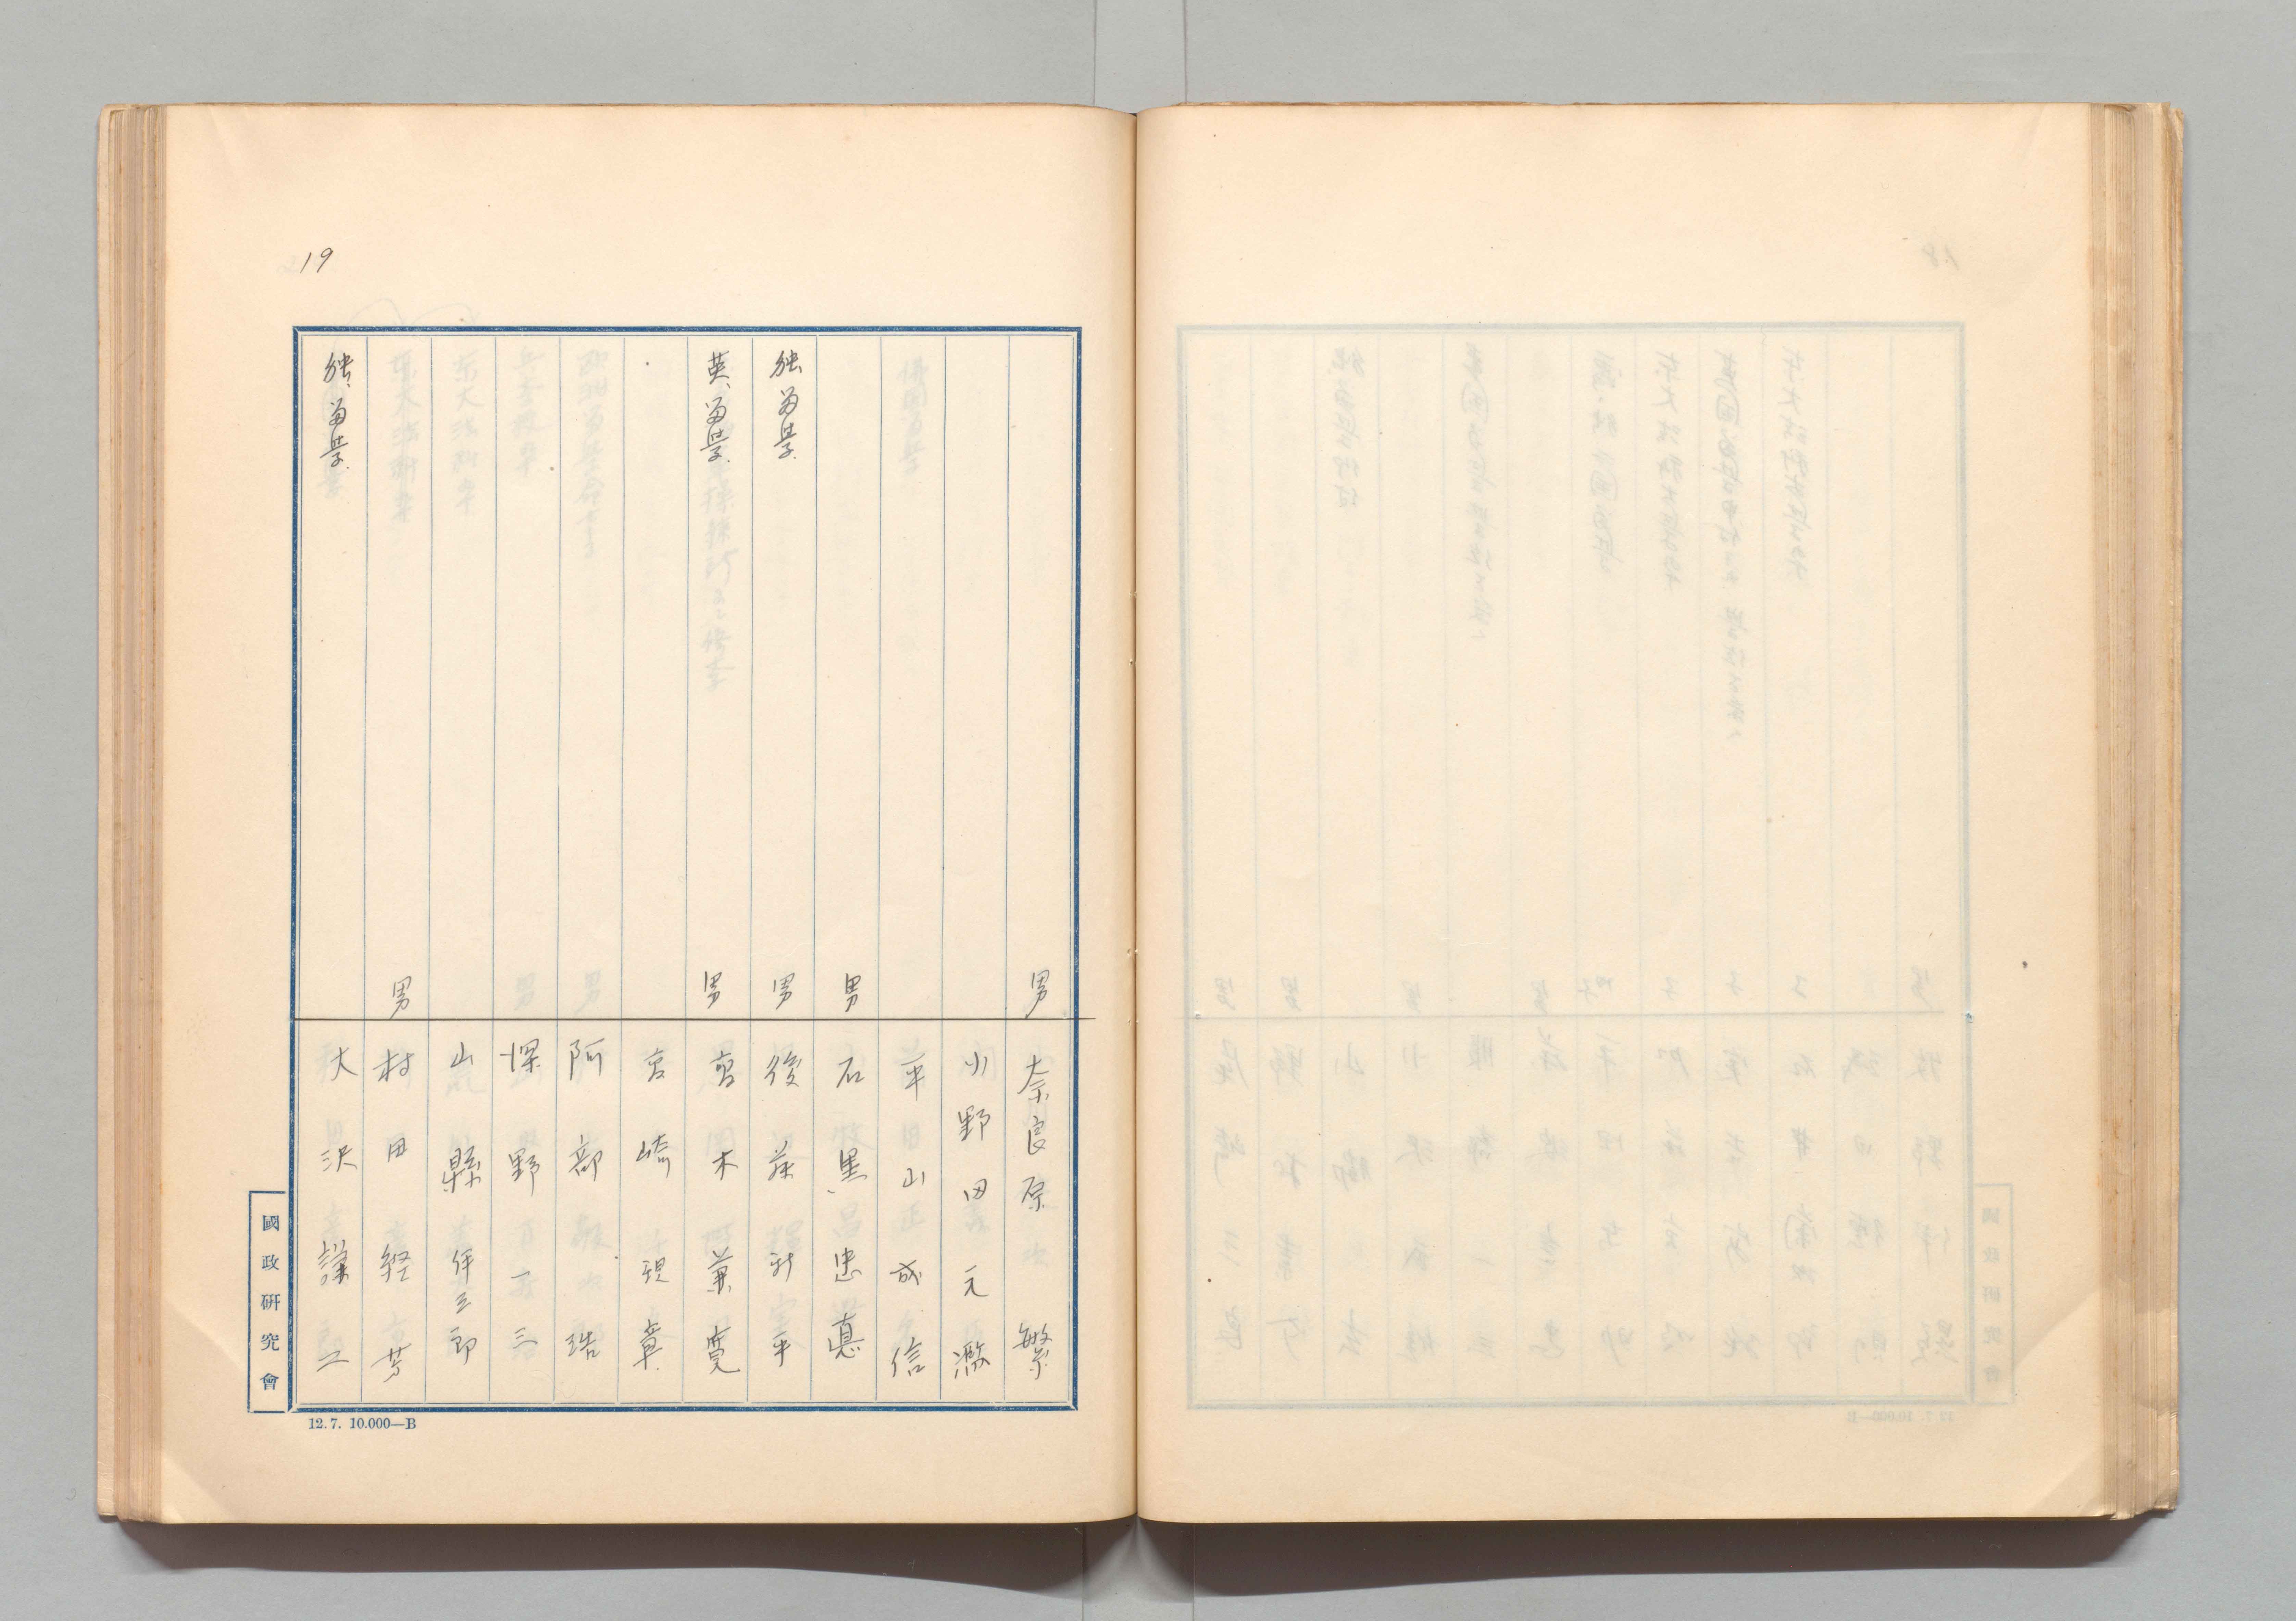 19
男 奈良原 繁
小野田元凞
平山成信
男 石黒忠悳
独、留学 男 後藤新平
英、留学 男 高木兼寛
宮崎 章
男 阿部 浩
深野一三
山縣伊三郎
男 村田経芳
独、留学 大沢謙二
國政研究會
12. 7. 10.000—B